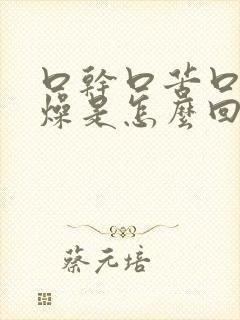 口幹口苦口
燥是怎麼回
蔡元培